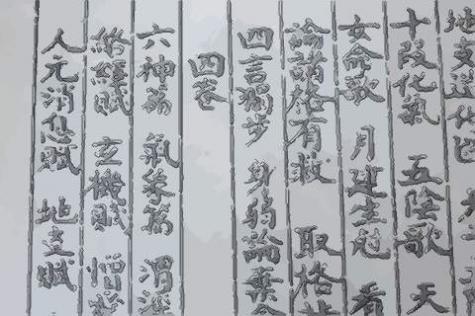 地支
十段化氣 五陰歌 天
女命歌 月 看
論諸格有救 取格
四言獨步 身弱論 棄命
四卷
六神篇 氣象篇 渭
絡繹賦 玄機賦 憎
人元消息賦 地支賦